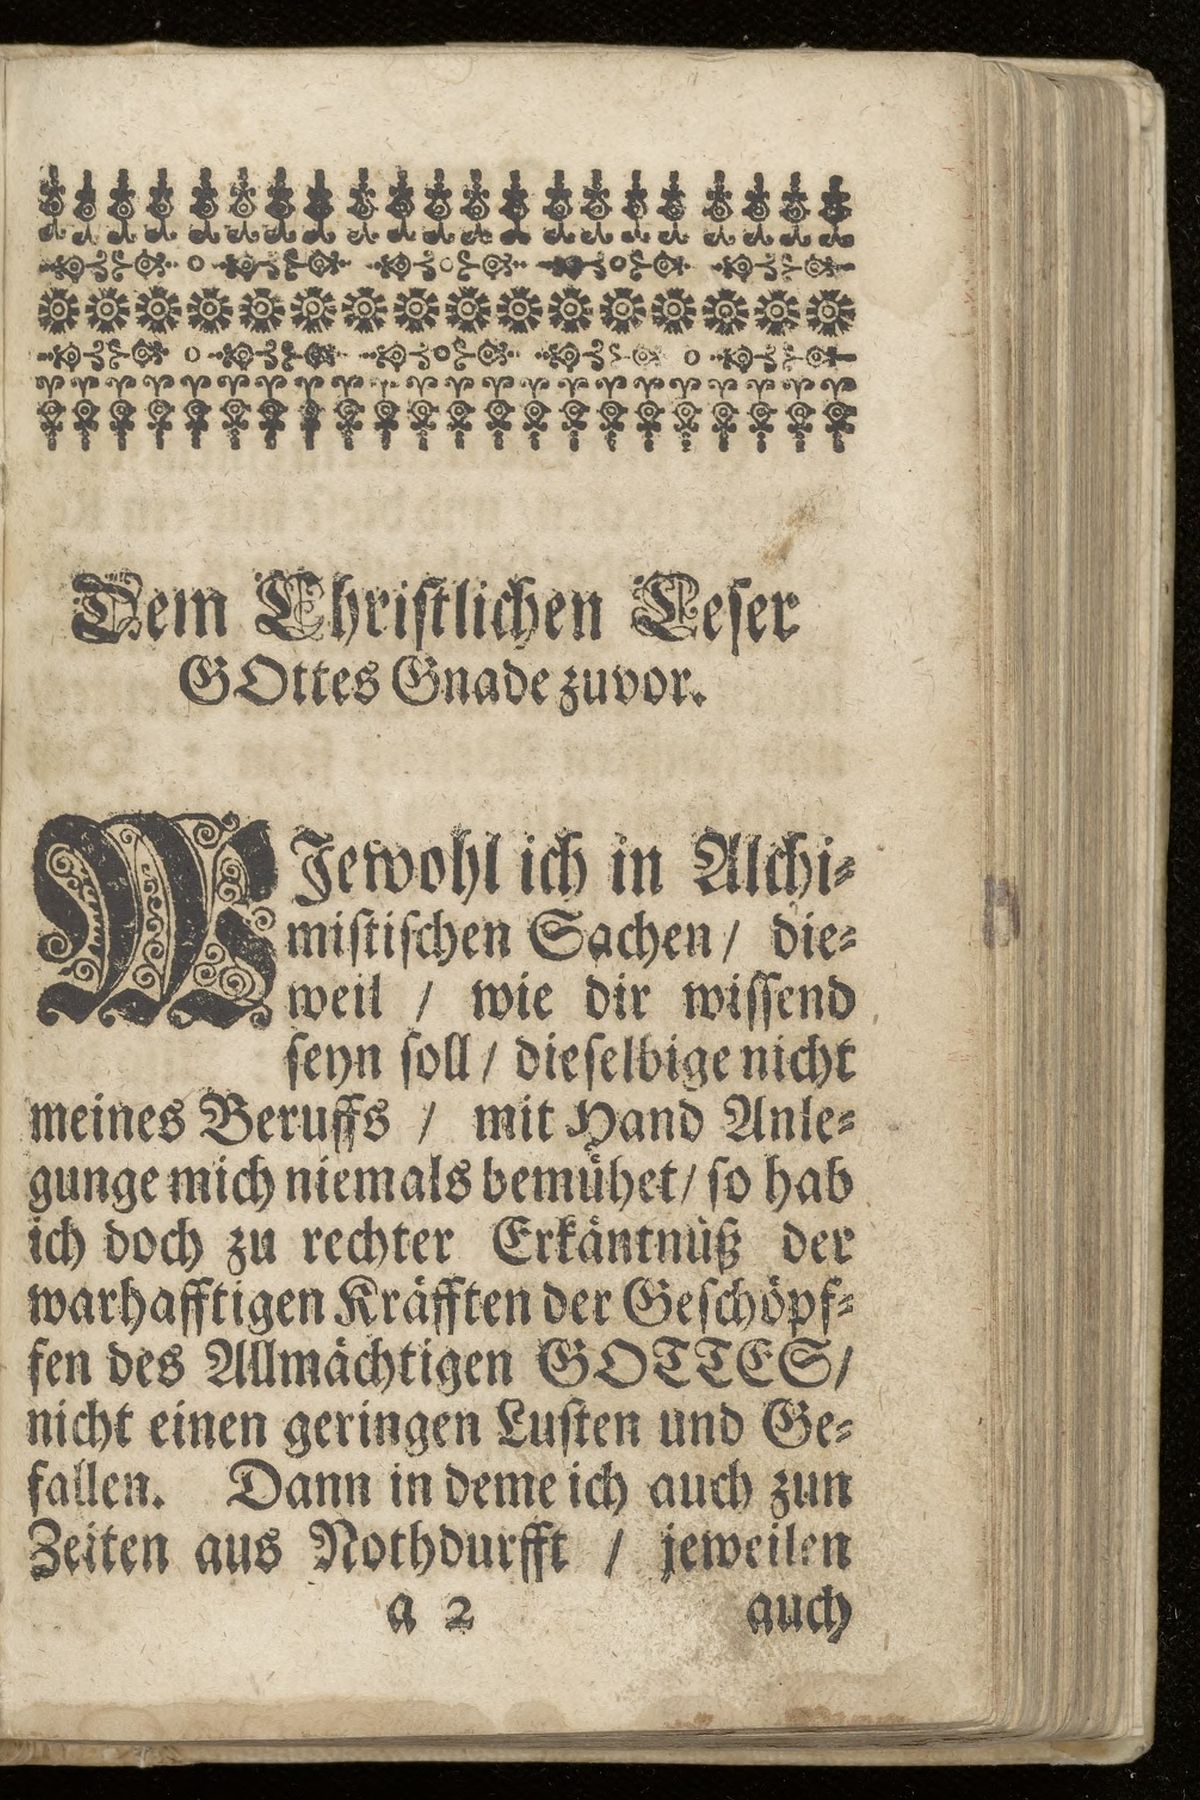 Dem Christlichen Leser
GOttes Gnade zuvor.
WJewohl ich in Alchi-
mistischen Sachen / die-
weil / wie dir wissend
seyn soll / dieselbige nicht
meines Beruffs / mit Hand Anle-
gunge mich niemals bemühet / so hab
ich doch zu rechter Erkäntnüß der
warhafftigen Kräfften der Geschöpf-
fen des Allmächtigen GOTTES /
nicht einen geringen Lusten und Ge-
fallen. Dann in deme ich auch zun
Zeiten aus Nothdurfft / jeweilen
a 2 auch